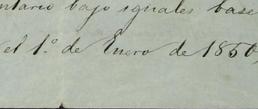 ntario bajo yguales base
el 1.º de Enero de 1850,